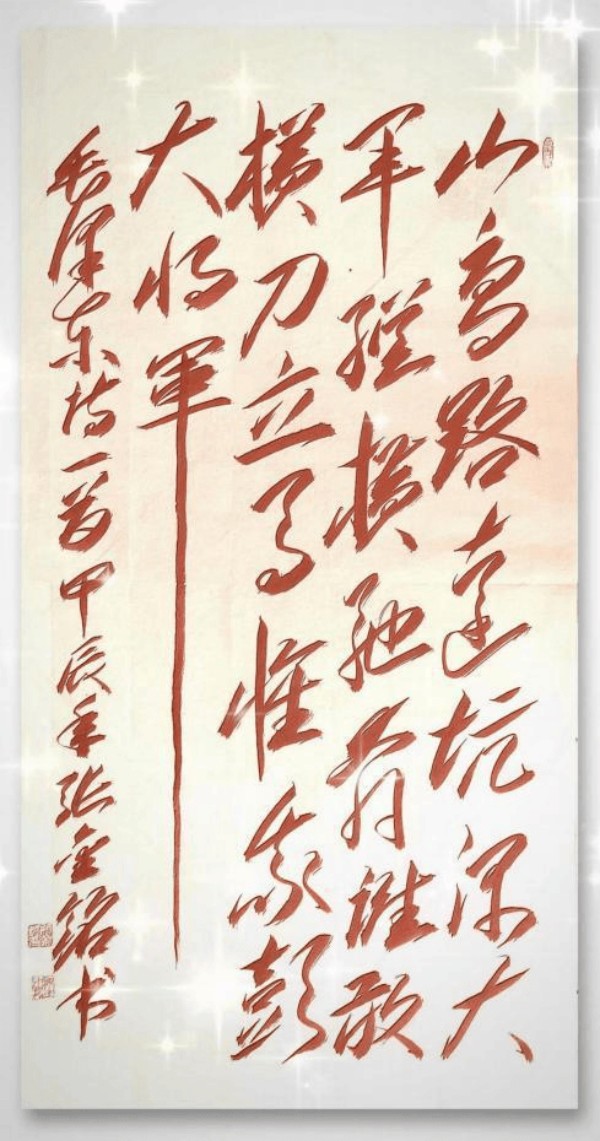 山高路远坑深大
军纵横驰奔谁敢
横刀立马惟我彭
大将軍
毛泽东诗一首甲辰年张金书